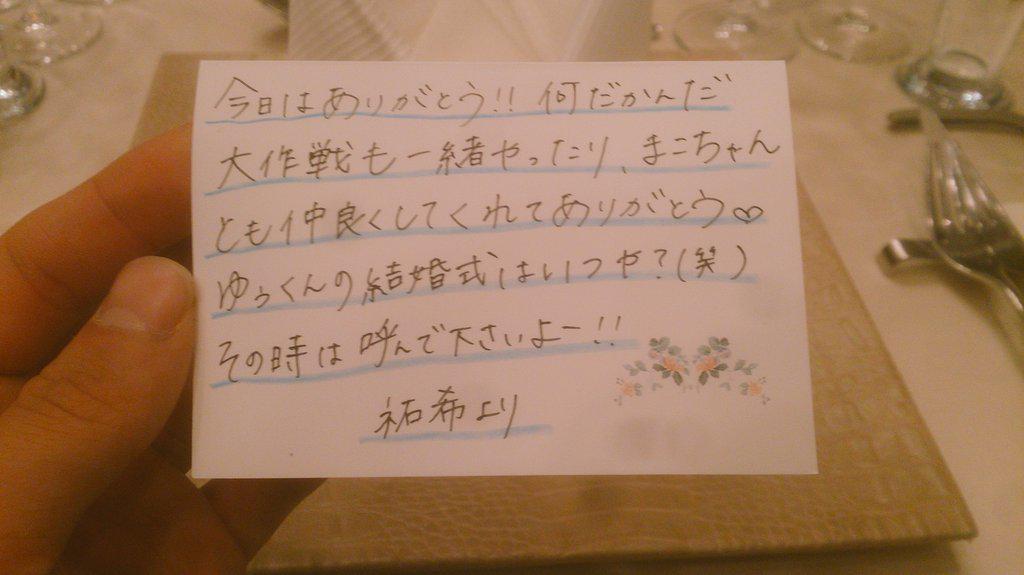 今日はありがとう!! 何だかんだ
大作戦も一緒やったり、まこちゃん
とも仲良くしてくれてありがとう♡
ゆうくんの結婚式はいつや?(笑)
その時は呼んで下さいよー!!
祐希より